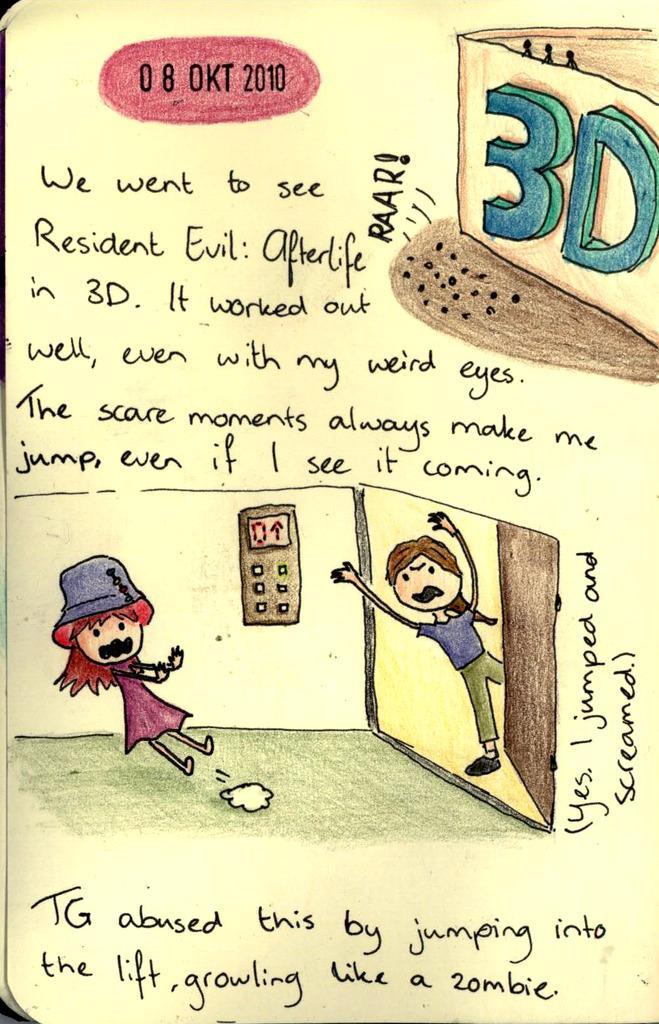 08 OKT 2010
3D
RAAR!
We went to see
Resident Evil: Afterlife
in 3D. It worked out
well, even with my weird eyes.
The scare moments always make me
jump, even if I see it coming.
0↑
(Yes, I jumped and
screamed.)
TG abused this by jumping into
the lift, growling like a zombie.